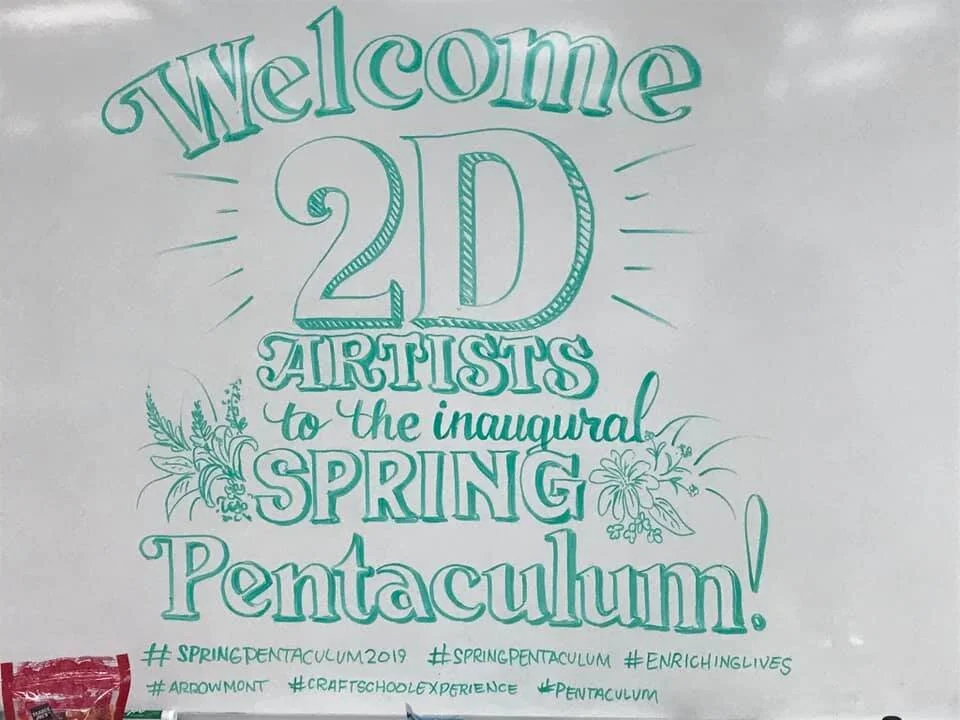 Welcome
2D
ARTISTS
to the inaugural
SPRING
Pentaculum!
#SPRINGPENTACULUM2019 #SPRINGPENTACULUM #ENRICHINGLIVES
#ARROWMONT #CRAFTSCHOOLEXPERIENCE #PENTACULUM